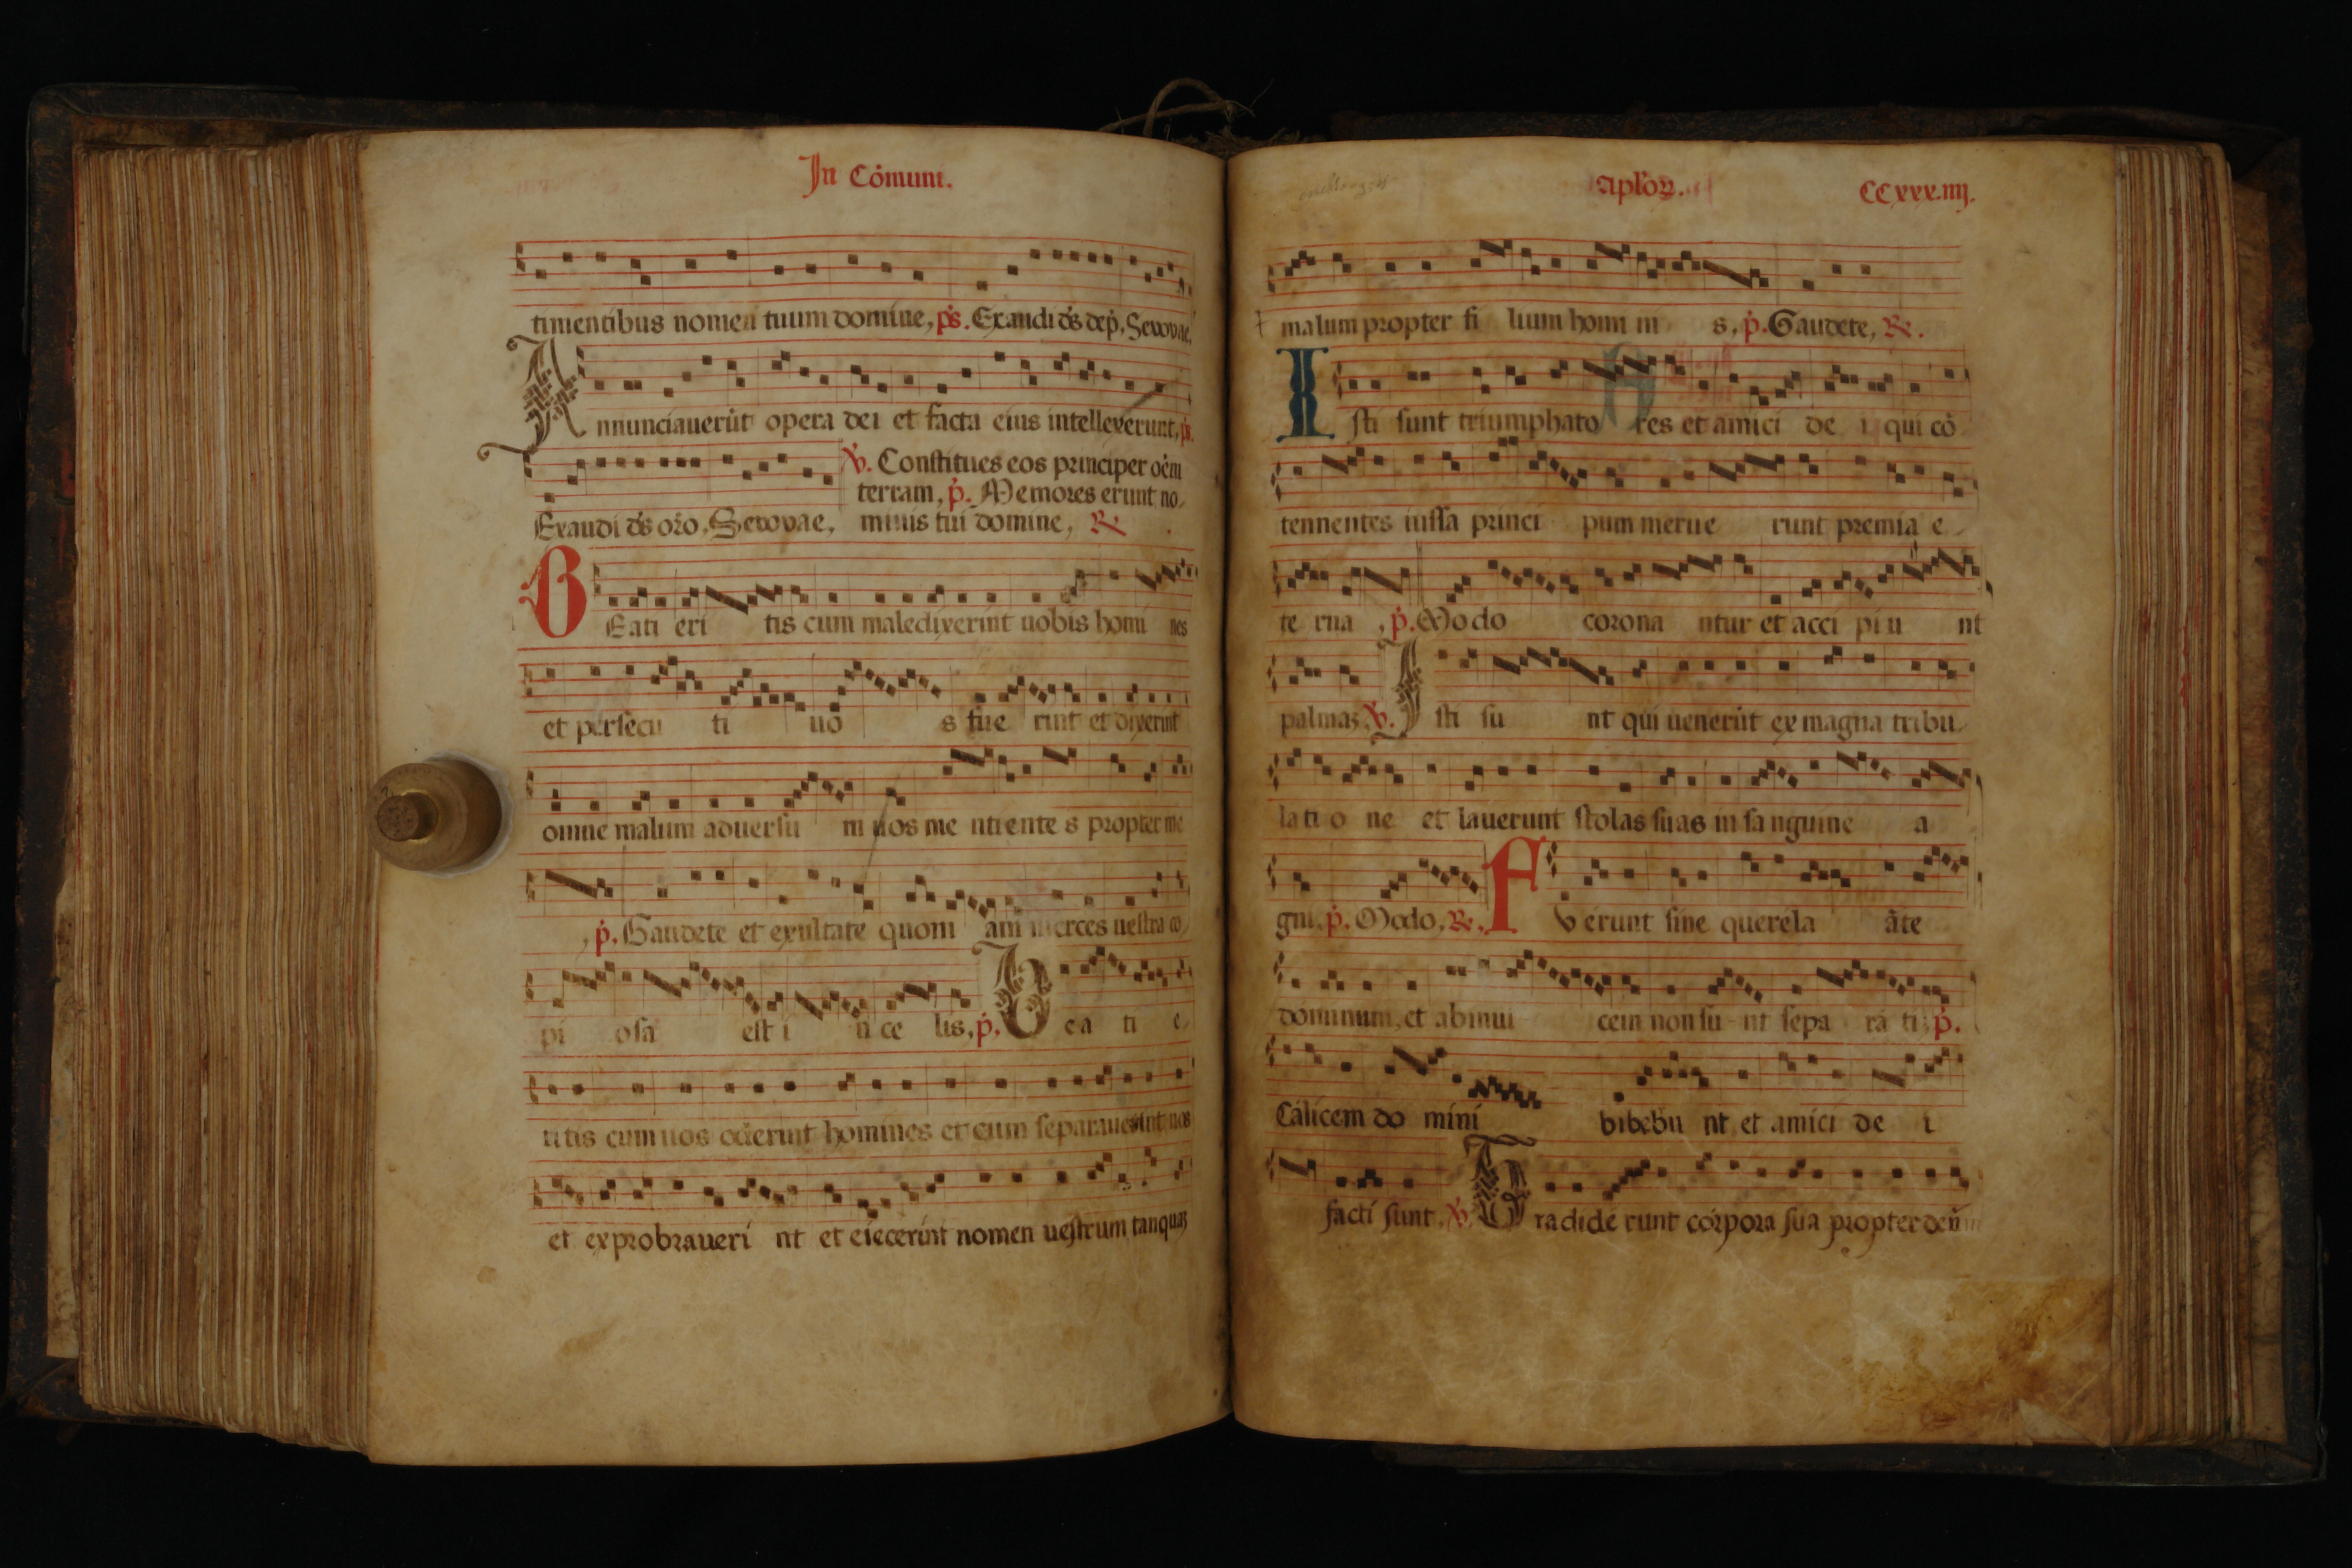 In Cōmuni.
timentibus nomen tuum domine, ps. Exaudi ds dep. Seuouae.
Annunciauerūt opera dei et facta eius intellexerunt, ps.
℣. Constitues eos principer oēm
terram, p. Memores erunt no-
Exaudi ds orō. Seuouae, minis tui domine, ℟.
BEati eri tis cum maledixerint uobis homi nes
et persecu ti uo s fue rint et dixerint
omne malum aduersu m uos me ntiente s propter me
, p. Gaudete et exultate quoni am merces uestra co-
pi osa est i n ce lis, p. Bea ti e-
ritis cum uos oderint homines et cum separauerint uos
et exprobraueri nt et eiecerint nomen uestrum tanquaz
aplōꝝ. CCxxx.iiij.
malum propter fi lium homi ni s, p. Gaudete, ℟.
Isti sunt triumphato res et amici de i qui cō
tennentes iussa princi pum merue runt premia e-
te rna , p. Modo corona ntur et acci piu nt
palmaz ℣. Isti su nt qui uenerūt ex magna tribu-
lati o ne et lauerunt stolas suas in sa nguine a
gni. p. Modo, ℟. Fverunt sine querela āte
dominum, et abinui cem non su- nt sepa ra ti: p.
Calicem do mini bibebu nt et amici de i
facti sunt. ℣. Tradide runt corpora sua propter deū